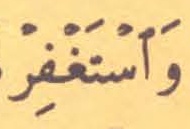 وَٱسْتَغْفِرْ